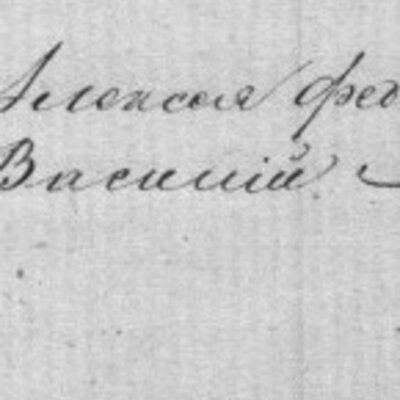 Алексея Фед
Василій